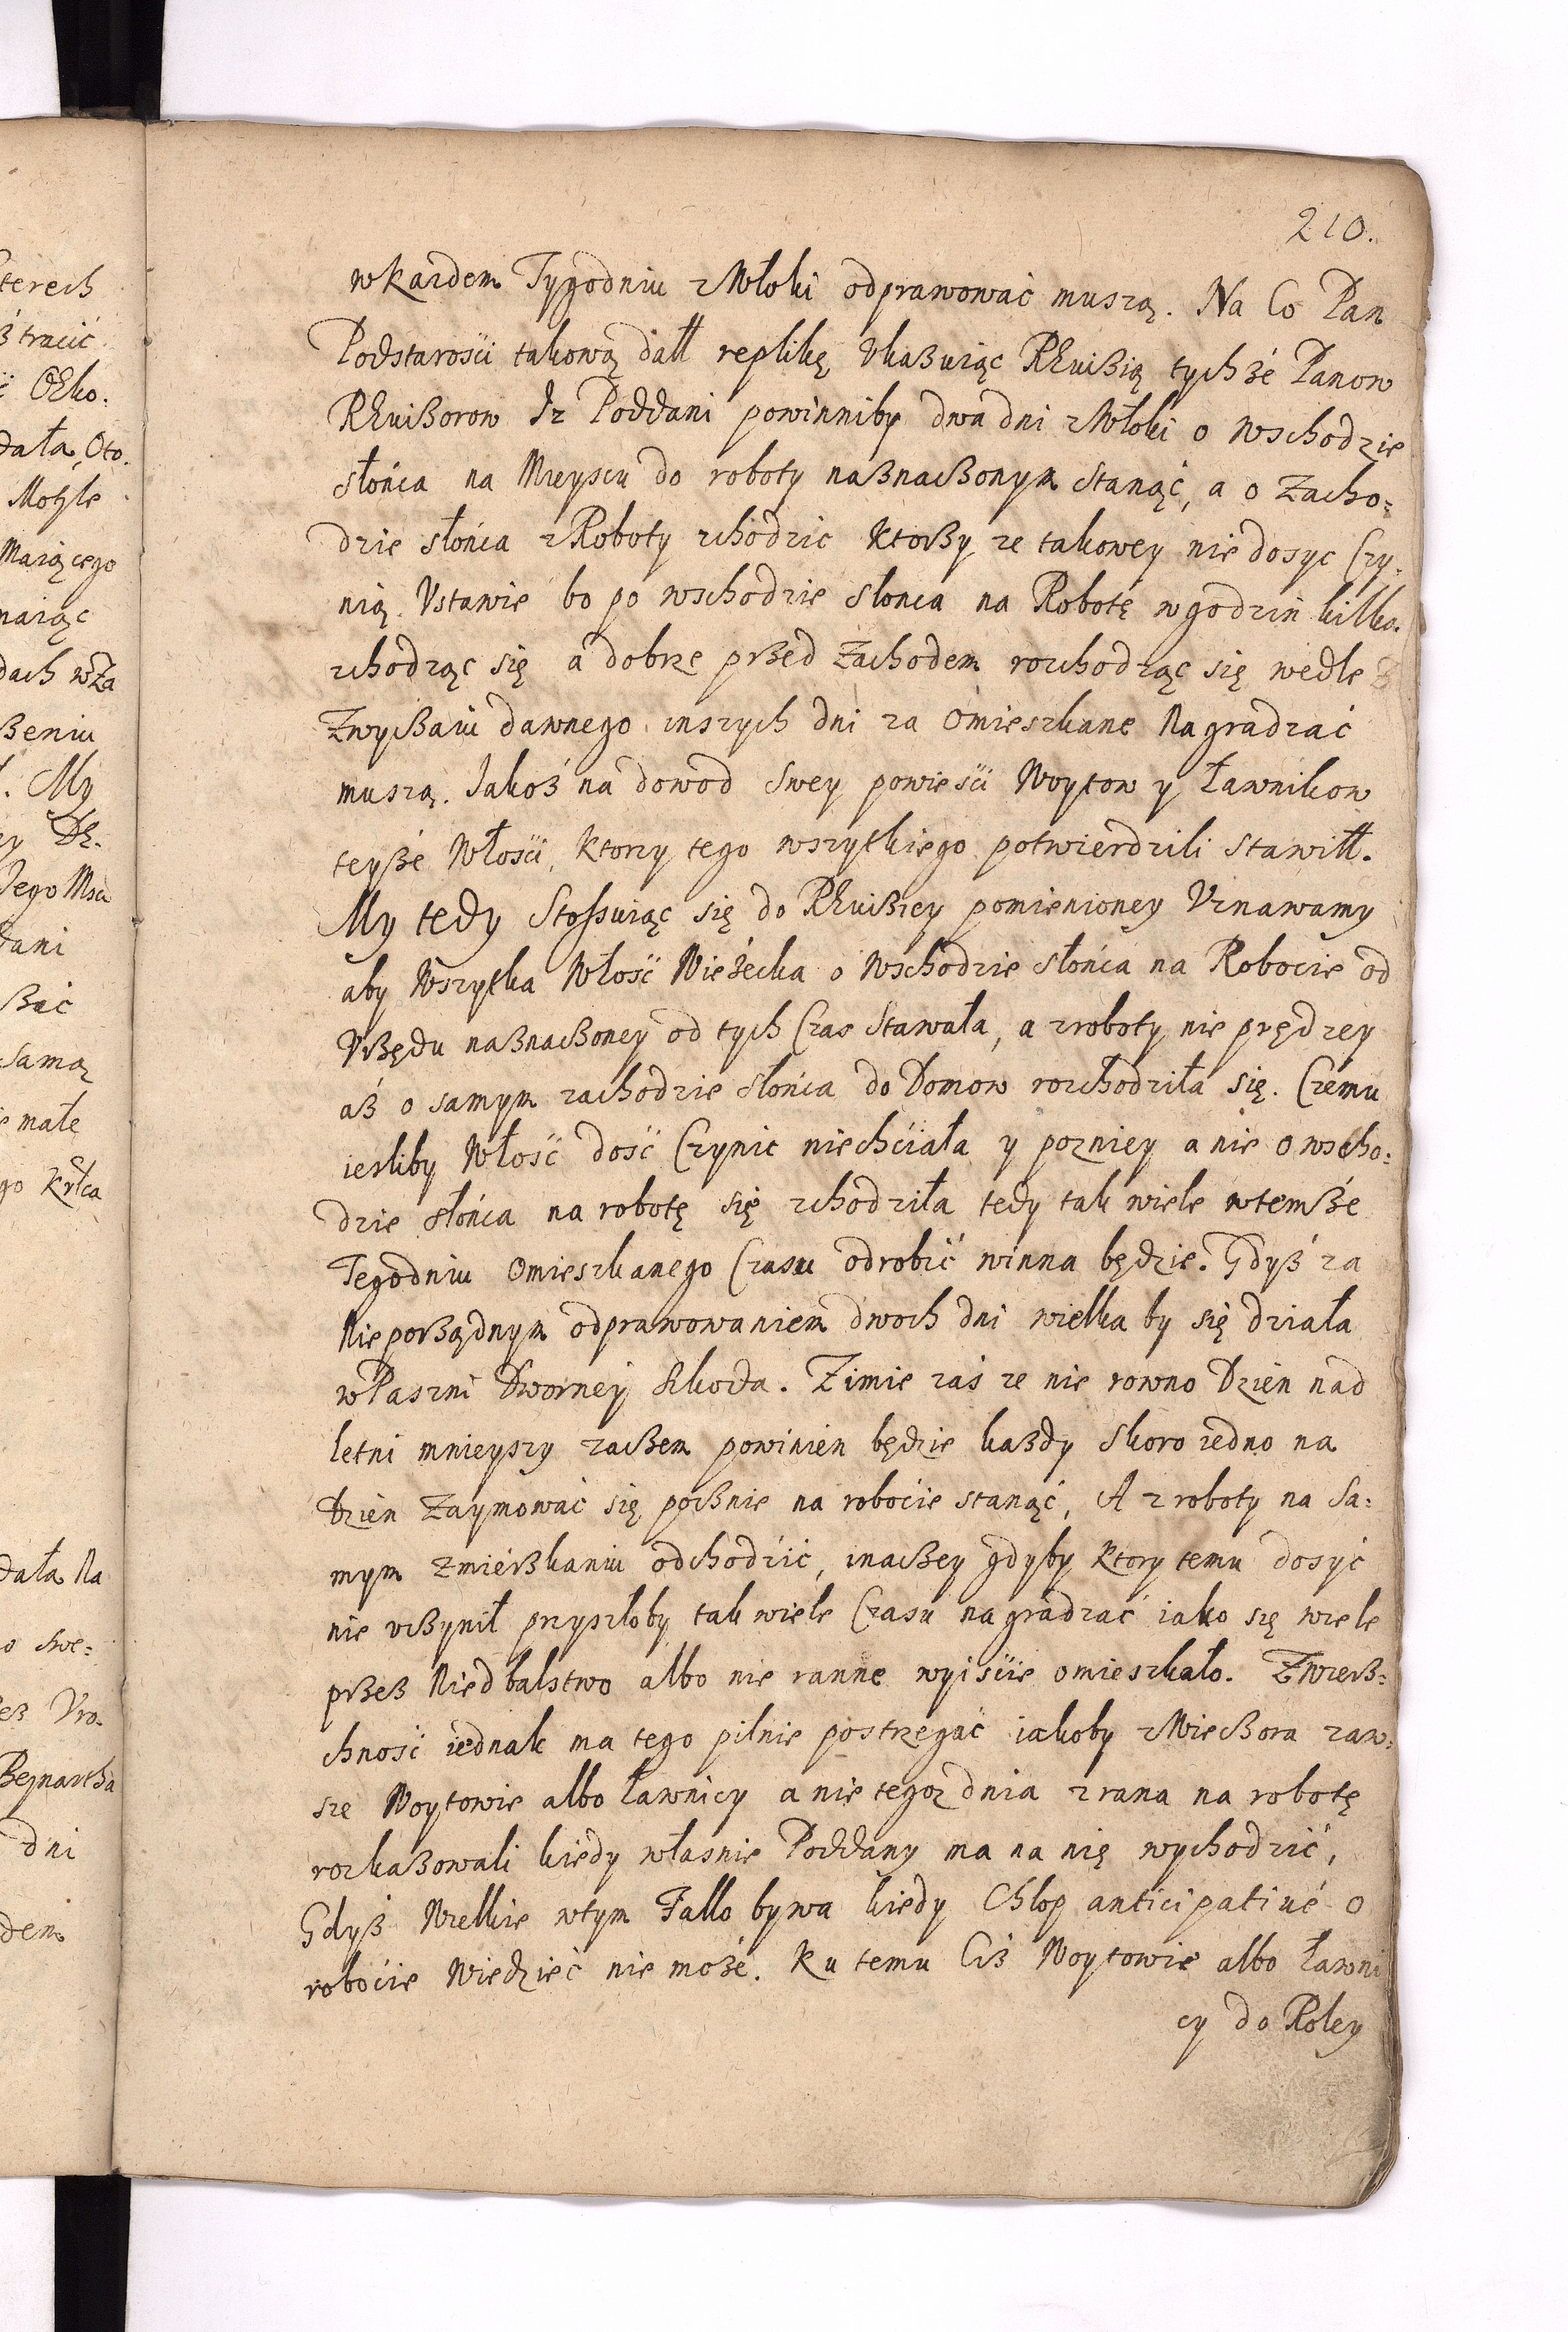 210.
w kazdem Tygodniu z Włoki odprawować muszą. Na Co Pan
Podstarosći takową dałł replikę Vkaßuiąc Rewißią tychże Panow
Rewißorow Iz Poddani powinniby dwa dni z Włoki o Wschodzie
słońca na Mieyscu do roboty naßnaßonym stanąć, a o Zacho:
dzie słońca z Roboty zchodzic Ktorßy ze takowey nie dosyc Czy:
nią. Vstawie bo po wschodzie słonca na Robotę w godzin kilko.
zchodząc się a dobrze przed Zachodem rozchodząc się wedle
Zwyßaiu dawnego inszych dni za Omieszkane Nagradzać
muszą. Jakoß na dowod Swey powiesći Woytow y Ławnikow
teyßé Włosći, Ktorzy tego wszytkiego potwierdzili Stawiłł.
My tedy Stossuiąc się do Rewißiey pomienioney Vznawamy
aby Wszytka Włosć Wieżecka o Wschodzie słońca na Robocie od
Vrßędu naßnaßoney od tych Czas Stawała, a z roboty nie prędzey
aß o samym zachodzie słońca do Domow rozchodziła się. Czemu
iesliby Włosć dosć Czynic niechćiała y pozniey a nie o wscho:
dzie słońca na robotę się zchodziła tedy tak wiele w temßé
Tegodniu Omieszkanego Czasu odrobić winna będzie. Gdyß za
Nieporßądnym odprawowaniem dwoch dni wielka by się działa
w Paszni Dworney Skoda. Zimie zaś ze nie rowno Dzien nad
letni mnieyszy zaßem powinien będzie kaßdy skoro iedno na
Dzien Zaymować się poßnie na robocie stanąć, A z roboty na Sa:
mym Zmierßkaniu odchodźić, inaßey gdyby Ktory temu dosyć
nie vßynił przyszłoby tak wiele Czasu nagradzać iako się wiele
przeß Niedbalstwo albo nie ranne wyisćie omieszkało. Zwierß:
chność iednak ma tego pilnie postrzegać iakoby z Wießora zaw:
sze Woytowie albo Ławnicy a nie tegoz dnia z rana na robotę
rozkaßowali kiedy własnie Poddany ma na nię wychodźić,
Gdyß Wielkie w tym Fallo bywa kiedy Chłop anticipatiué o
roboćie Wiedzieć nie moßé. Ku temu Ciß Woytowie albo Ławni
cy do Roley